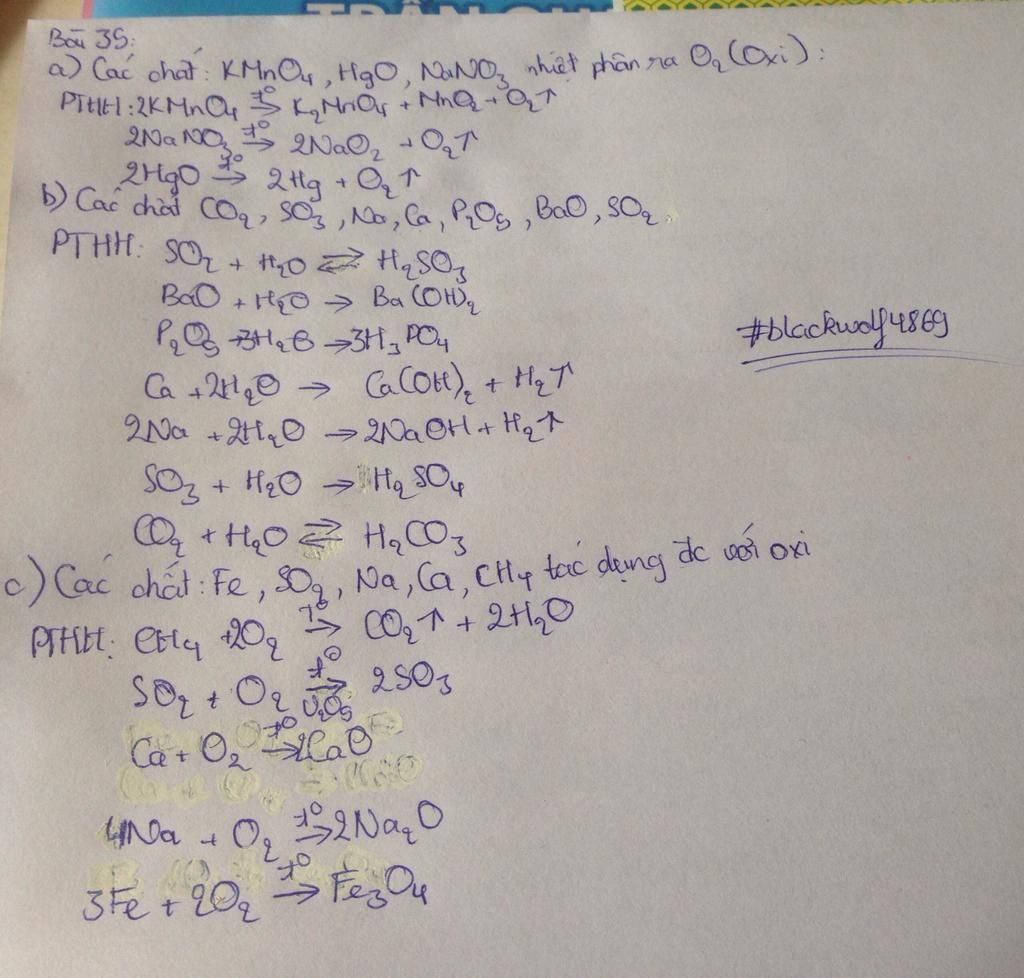 TRÂN
Bài 35:
a) Các chất: KMnO₄, HgO, NaNO₃ nhiệt phân ra O₂ (Oxi):
PTHH: 2KMnO₄ t°→ K₂MnO₄ + MnO₂ + O₂↑
2NaNO₃ t°→ 2NaO₂ + O₂↑
2HgO t°→ 2Hg + O₂↑
b) Các chất CO₂, SO₃, Na, Ca, P₂O₅, BaO, SO₂
PTHH: SO₂ + H₂O ⇄ H₂SO₃
BaO + H₂O → Ba(OH)₂
P₂O₅ + 3H₂O → 3H₃PO₄
Ca + 2H₂O → Ca(OH)₂ + H₂↑
#blackwolf4869
2Na + 2H₂O → 2NaOH + H₂↑
SO₃ + H₂O → H₂SO₄
CO₂ + H₂O ⇄ H₂CO₃
c) Các chất: Fe, SO₂, Na, Ca, CH₄ tác dụng đc với oxi
PTHH: CH₄ + 2O₂ t°→ CO₂↑ + 2H₂O
SO₂ + O₂ t°→ V₂O₅ 2SO₃
Ca + O₂ t°→ 2CaO
4Na + O₂ t°→ 2Na₂O
3Fe + 2O₂ t°→ Fe₃O₄